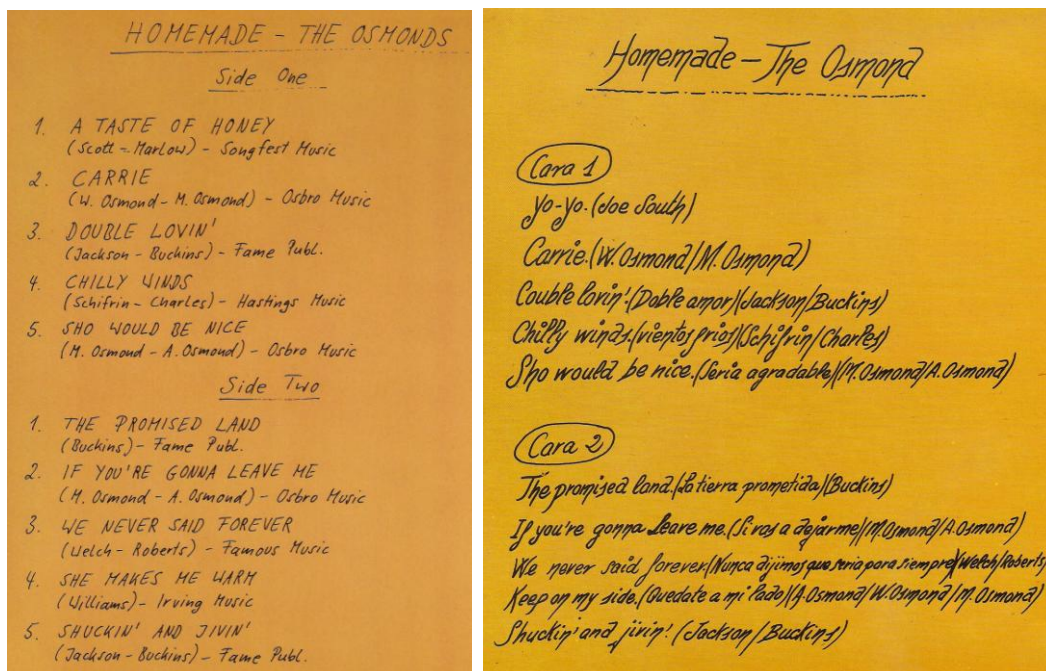 HOMEMADE - THE OSMONDS
Side One
1. A TASTE OF HONEY
(Scott - Marlow) - Songfest Music
2. CARRIE
(W. Osmond - M. Osmond) - Osbro Music
3. DOUBLE LOVIN'
(Jackson - Buckins) - Fame Publ.
4. CHILLY WINDS
(Schifrin - Charles) - Hastings Music
5. SHO WOULD BE NICE
(M. Osmond - A. Osmond) - Osbro Music
Side Two
1. THE PROMISED LAND
(Buckins) - Fame Publ.
2. IF YOU'RE GONNA LEAVE ME
(M. Osmond - A. Osmond) - Osbro Music
3. WE NEVER SAID FOREVER
(Welch - Roberts) - Famous Music
4. SHE MAKES ME WARM
(Williams) - Irving Music
5. SHUCKIN' AND JIVIN'
(Jackson - Buckins) - Fame Publ.
Homemade - The Osmond
Cara 1
Yo-yo. (Joe South)
Carrie. (W. Osmond/M. Osmond)
Couble lovin'. (Doble amor) (Jackson/Buckins)
Chilly winds. (vientos frios) (Schifrin/Charles)
Sho would be nice. (Seria agradable) (M. Osmond/A. Osmond)
Cara 2
The promised land. (La tierra prometida) (Buckins)
If you're gonna leave me. (Si vas a dejarme) (M. Osmond/A. Osmond)
We never said forever. (Nunca dijimos que seria para siempre) (Welch/Roberts)
Keep on my side. (Quedate a mi lado) (A. Osmond/W. Osmond/M. Osmond)
Shuckin' and jivin'. (Jackson/Buckins)